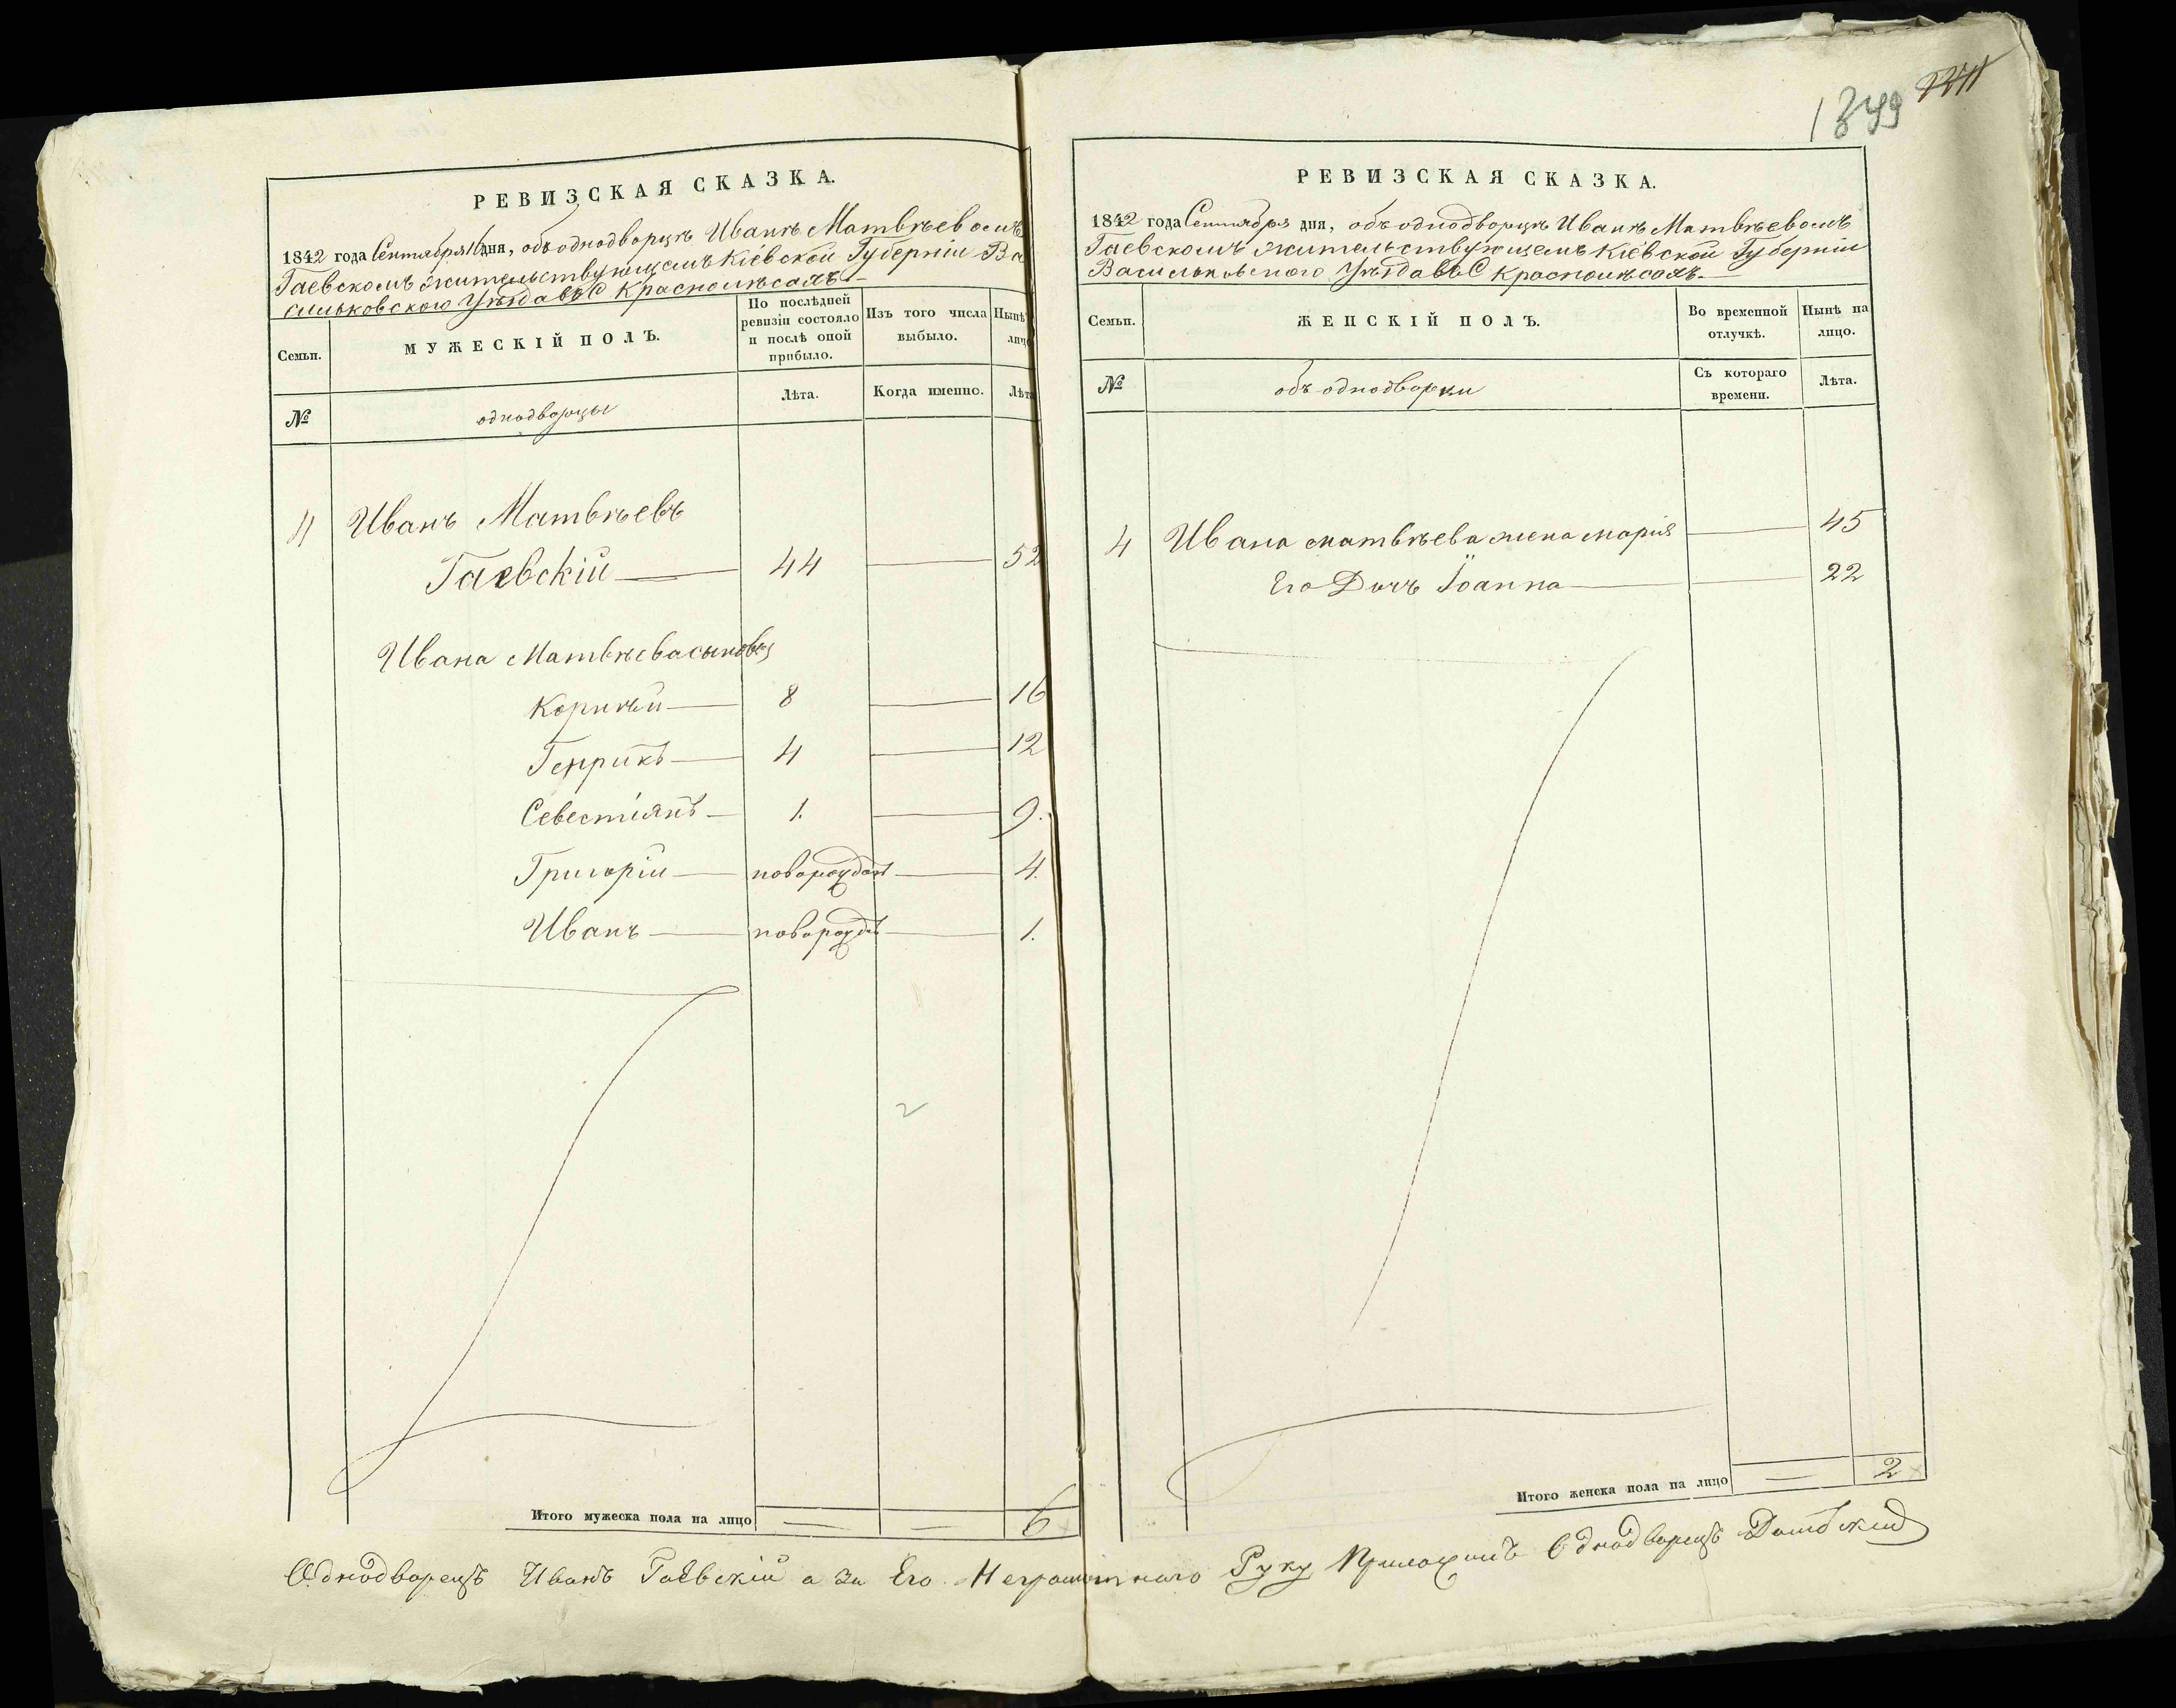 1349 2241
РЕВИЗСКАЯ СКАЗКА.
1842 года Сентября 16 дня, объ однодворцѣ Иванѣ Матвѣевомъ
Гаевскомъ жительствующемъ Кіевской Губерніи Ва
сильковского Уѣзда въ С Красномъ
Семьи.
МУЖЕСКІЙ ПОЛЪ.
По послѣдней ревизіи состояло и послѣ оной прибыло.
Изъ того числа выбыло.
Нынѣ лицо
№
однодворцы
Лѣта.
Когда именно.
Лѣта
4 Иванъ Матвѣевъ
Гаевскій 44 52
Ивана Матвѣева сыновья
Корнѣй 8 16
Генрикъ 4 12
Севестіянъ 1. 9.
Григорій новорожден 4.
Иванъ новорожд 1.
Итого мужеска пола на лицо — — 6
РЕВИЗСКАЯ СКАЗКА.
1842 года Сентября дня, объ однодворцѣ Иванѣ Матвѣевомъ
Гаевскомъ жительствующемъ Кіевской Губерніи
Васильковского Уѣзда въ С Красномъ
Семьи.
ЖЕНСКІЙ ПОЛЪ.
Во временной отлучкѣ.
Нынѣ на лицо.
№
объ однодворки
Съ котораго времени.
Лѣта.
4 Ивана Матвѣева жена Марія 45
Его Дочь Іоанна 22
Итого женска пола на лицо — 2
Однодворецъ Иванъ Гаевскій а За Его Неграмотного Руку Приложилъ Однодворецъ